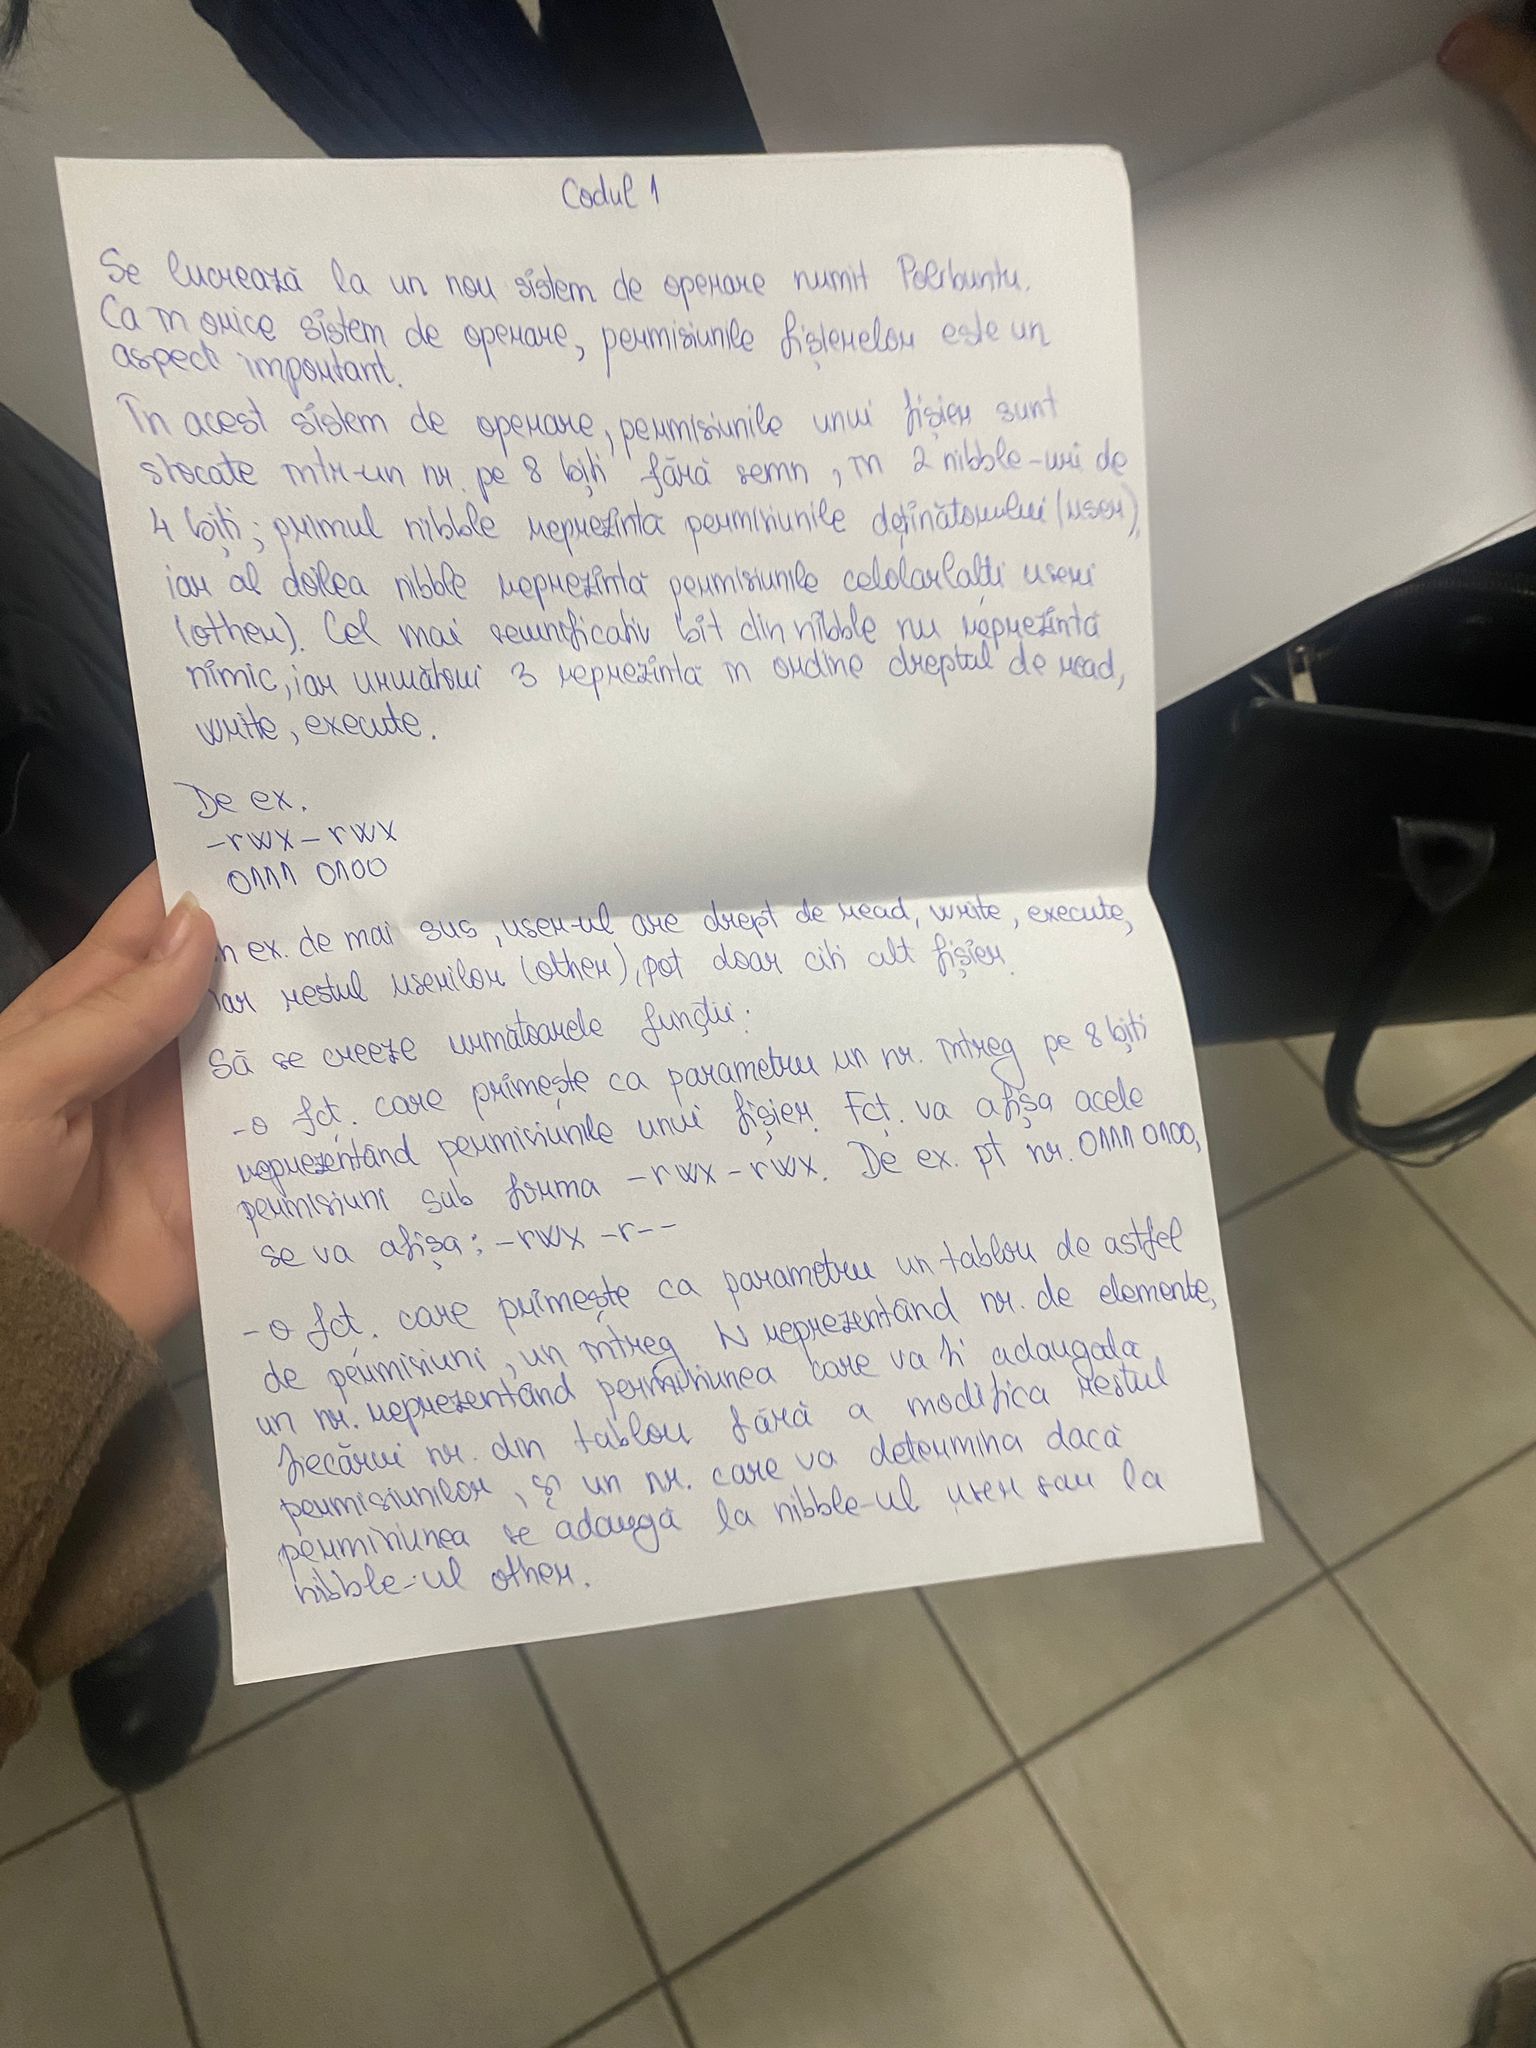 Codul 1
Se lucrează la un nou sistem de operare numit Polibuntu.
Ca în orice sistem de operare, permisiunile fișierelor este un
aspect important.
În acest sistem de operare, permisiunile unui fișier sunt
stocate într-un nr. pe 8 biți fără semn, în 2 nibble-uri de
4 biți; primul nibble reprezintă permisiunile deținătorului (user),
iar al doilea nibble reprezintă permisiunile celolarlalți useri
(other). Cel mai semnificativ bit din nibble nu reprezintă
nimic, iar următorii 3 reprezintă în ordine dreptul de read,
write, execute.
De ex.
-rwx-rwx
0111 0100
n ex. de mai sus, user-ul are drept de read, write, execute,
iar restul userilor (other), pot doar citi alt fișier.
Să se creeze următoarele funcții:
-o fct. care primește ca parametru un nr. întreg pe 8 biți
reprezentând permisiunile unui fișier. Fct. va afișa acele
permisiuni sub forma -rwx-rwx. De ex. pt nr. 0111 0100,
se va afișa: -rwx -r--
-o fct. care primește ca parametru un tablou de astfel
de permisiuni, un întreg N reprezentând nr. de elemente,
un nr. reprezentând permisiunea care va fi adaugata
fiecărui nr. din tablou fără a modifica restul
permisiunilor, și un nr. care va determina dacă
permisiunea se adaugă la nibble-ul user sau la
nibble-ul other.